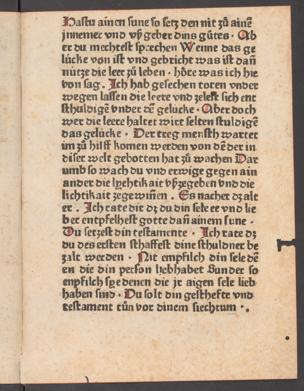 Hastu ainen sune so setz den nit zů ainē
jnnemer vnd vß geber dins gůtes · Ab
er du mechtest sprechen Wenne das ge
lücke von ist vnd gebricht was ist dañ
nütze die leer zů leben · höre was ich hie
von sag · Ich hab gesechen toren vnder
wegen lassen die leere vnd zelest sich ent
schuldigē vnder dē gelucke · Aber doch
wer die leere haltet wirt selten stuldigē
das gelücke · Der treg mensth wartet
im zů hilff komen werden von dē der in
diser welt gebotten hat zů wachen Dar
umb so wach du vnd erwige gegen ain
ander die lychtikait vßzegeben vnd die
lichtikait zegewiñen · Es nachet dz alt
er · Ich rate dir dz du din sele ee vnd lie
ber entpfelhest gotte dañ ainem sune ·
Du setzest din testamente · Ich rate dz
du des ersten sthaffest dine sthuldner be
zalt werden · Nit empfilch din sele dē
en die din person lyebhabet Sunder so
enpfilch sye denen die jr aigen sele lieb
haben sind · Du solt din gesthefte vnd
testament tůn vor dinem siechtum ·